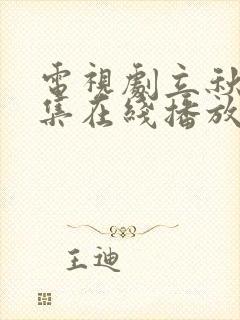 電視劇立秋
集在綫播放
王迪